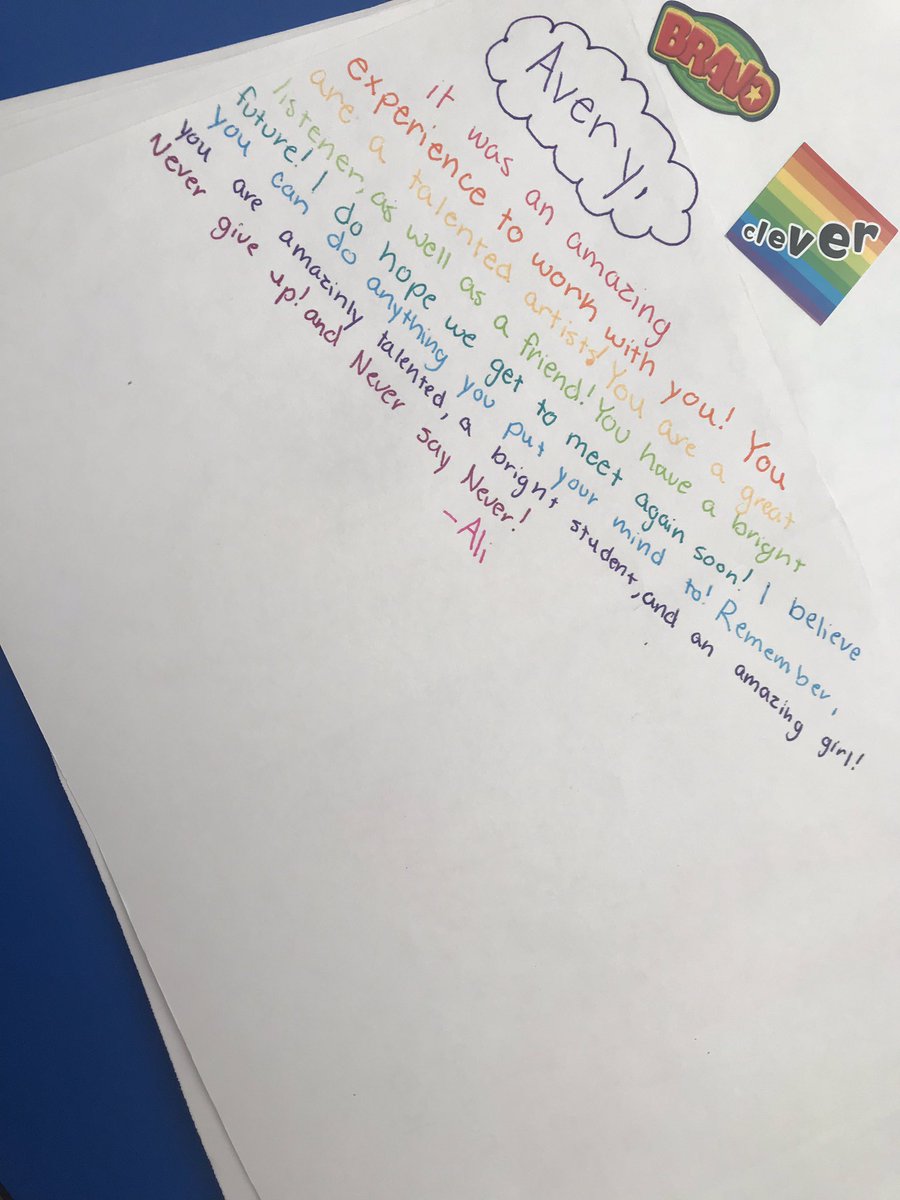 BRAVO
clever
Avery,
it was an amazing
experience to work with you! You
are a talented artists! You are a great
listener, as well as a friend! You have a bright
future! I do hope we get to meet again soon! I believe
you can do anything you put your mind to! Remember,
you are amazinly talented, a bright student, and an amazing girl!
Never give up! and Never say Never!
-Ali